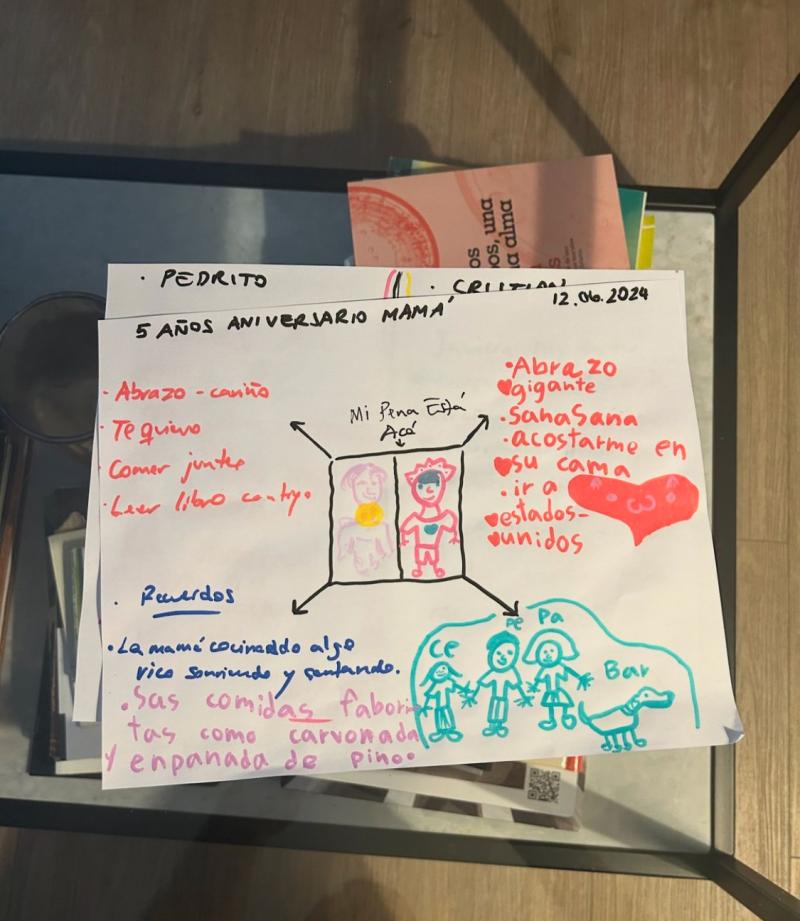 os
os, una
na alma
· PEDRITO
· CRISTIAN
12.06.2024
5 AÑOS ANIVERSARIO MAMÁ
· Abrazo - cariño
· Te quiero
· Comer juntos
· Leer libro contigo.
Mi Pena Está
Acá
·Abrazo
gigante
·SanaSana
·acostarme en
su cama
·ir a
estados-
unidos
· Recuerdos
·La mamá cocinando algo
rico sonriendo y cantando.
·Sas comidas fabori
tas como carvonada
y enpanada de pino.
ce
pe
Pa
Bar